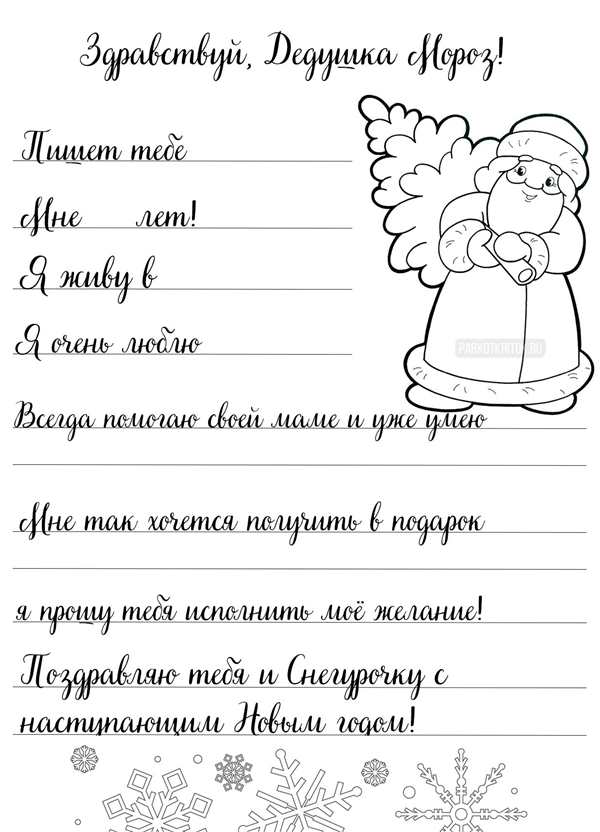 Здравствуй, Дедушка Мороз!
Пишет тебе
Мне лет!
Я живу в
Я очень люблю
Всегда помогаю своей маме и уже умею
Мне так хочется получить в подарок
я прошу тебя исполнить моё желание!
Поздравляю тебя и Снегурочку с
наступающим Новым годом!